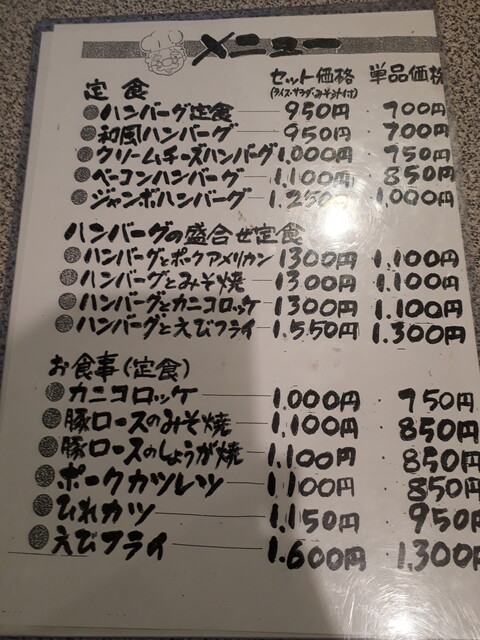 メニュー
定食 セット価格 単品価格
(ライス・サラダ・みそ汁付)
ハンバーグ定食 950円 700円
和風ハンバーグ 950円 700円
クリームチーズハンバーグ 1.000円 750円
ベーコンハンバーグ 1.100円 850円
ジャンボハンバーグ 1.250円 1.000円
ハンバーグの盛合せ定食
ハンバーグとポークアメリカン 1300円 1.100円
ハンバーグとみそ焼 1300円 1.100円
ハンバーグとカニコロッケ 1300円 1.100円
ハンバーグとえびフライ 1.550円 1.300円
お食事(定食)
カニコロッケ 1.000円 750円
豚ロースのみそ焼 1.100円 850円
豚ロースのしょうが焼 1.100円 850円
ポークカツレツ 1.100円 850円
ひれカツ 1.150円 950円
えびフライ 1.600円 1.300円